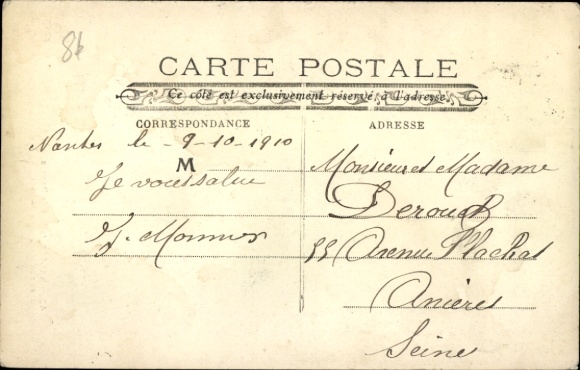 86
CARTE POSTALE
Ce côté est exclusivement réservé à l'adresse
CORRESPONDANCE
ADRESSE
Nantes le - 9-10-1910
M
Je vous salue
J. Monnier
Monsieur et Madame
Derouet
55 Avenue Flachat
Anières
Seine